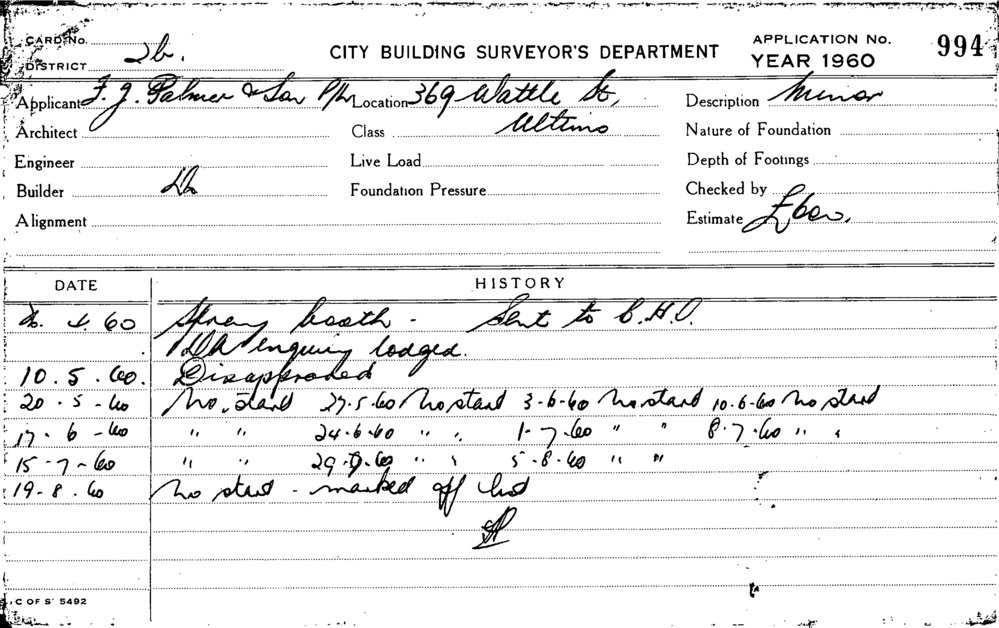 CARD No.
DISTRICT 2b.
CITY BUILDING SURVEYOR'S DEPARTMENT
APPLICATION No. 994
YEAR 1960
Applicant F. J. Palmer & Son P/L Location 369 Wattle St, Description Minor
Architect Class Ultimo Nature of Foundation
Engineer Live Load Depth of Footings
Builder Foundation Pressure Checked by
Alignment Estimate
DATE HISTORY
4. 60 Spray booth - Sent to C.H.O.
DA enquiry lodged.
10.5.60. Disapproved
20.5-60 No. start 27.5.60 No start 3-6-60 No start 10.6-60 No start
17.6-60 " " 24.6.60 " " 1-7.60 " " 8.7.60 " "
15-7-60 " " 29.7.60 " " 5-8.60 " "
19-8.60 No start - marked off list
C OF S' 5492